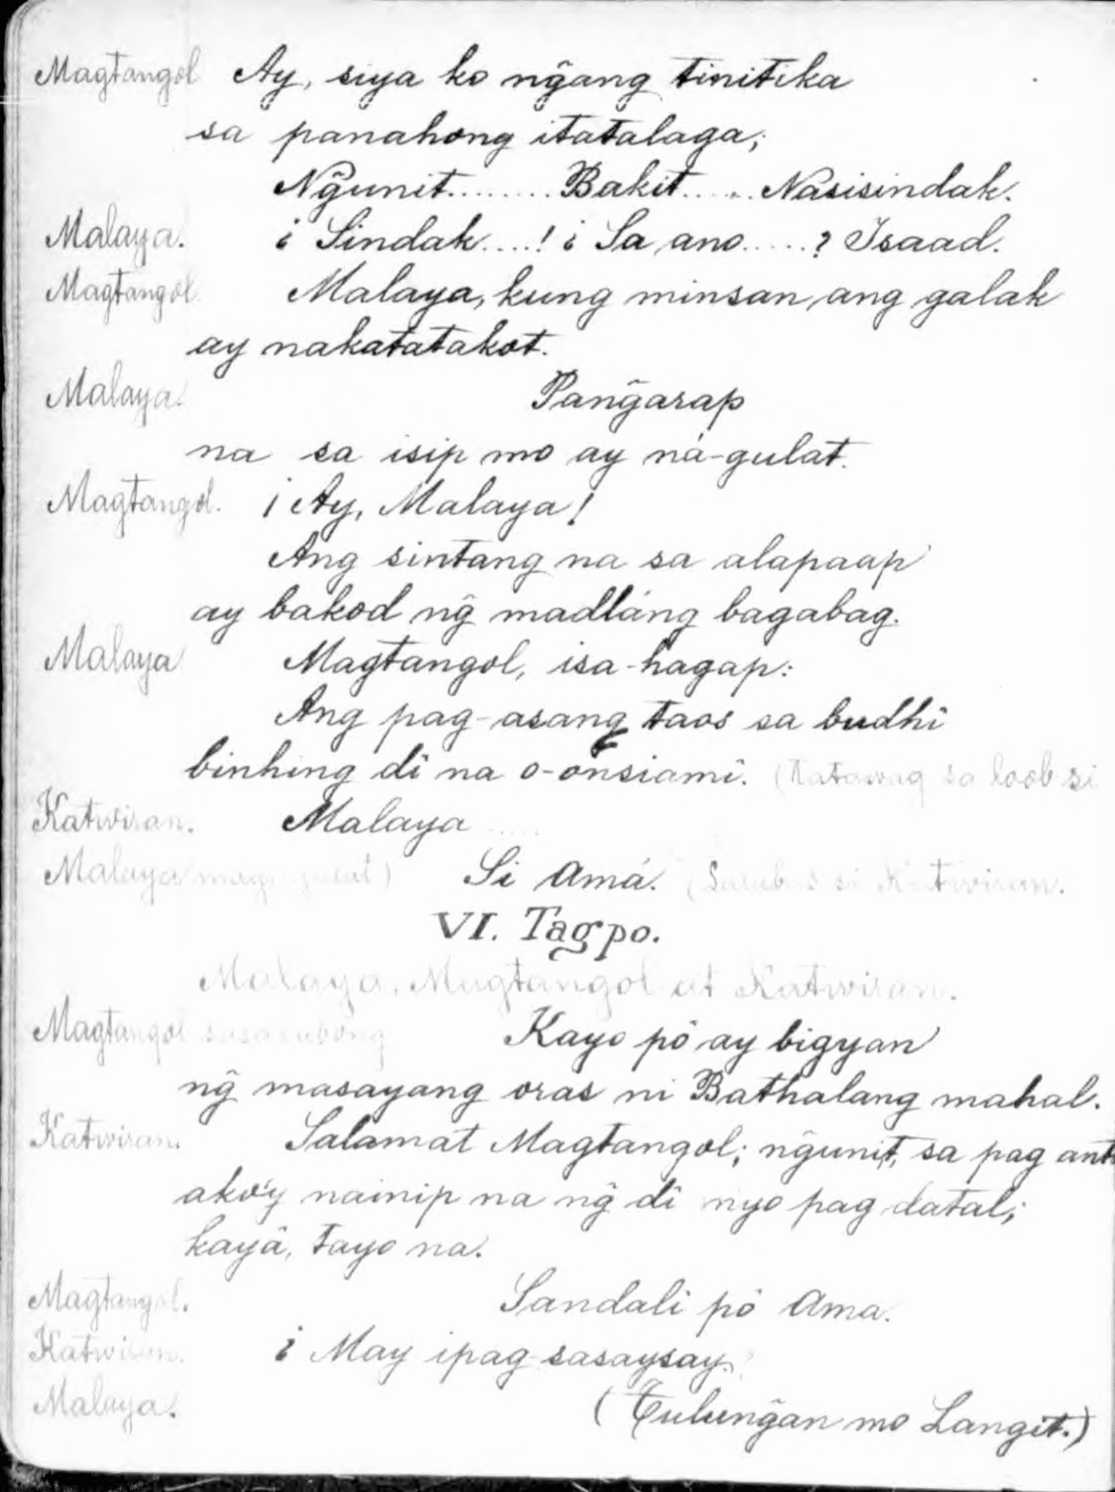 Magtangol Ay, siya ko ng̃ang tinitika
sa panahong itatalaga;
Ng̃unit........Bakit......Nasisindak.
Malaya. ¿ Sindak....! ¿ Sa ano.....? Isaad.
Magtangol Malaya, kung minsan, ang galak
ay nakatatakot.
Malaya. Pang̃arap
na sa isip mo ay ná-gulat.
Magtangol. ¡ Ay, Malaya!
Ang sintang na sa alapaap
ay bakod ng̃ madláng bagabag.
Malaya Magtangol, isa-hagap:
Ang pag-asang taos sa budhî
binhing dî na o-onsiamî. (Natawag sa loob si
Katwiran. Malaya .....
Malaya Si Amá. (Lalabas si Katwiran.
VI. Tagpo.
Malaya, Magtangol at Katwiran.
Magtangol sasalubong Kayo pô ay bigyan
ng̃ masayang oras ni Bathalang mahal.
Katwiran. Salamat Magtangol; ng̃unit, sa pag ant
ako'y nainip na ng̃ dî nyo pag datal;
kayâ, tayo na.
Magtangol. Sandali pô Ama.
Katwiran. ¿ May ipag-sasaysay?
Malaya. (Tulung̃an mo Langit.)